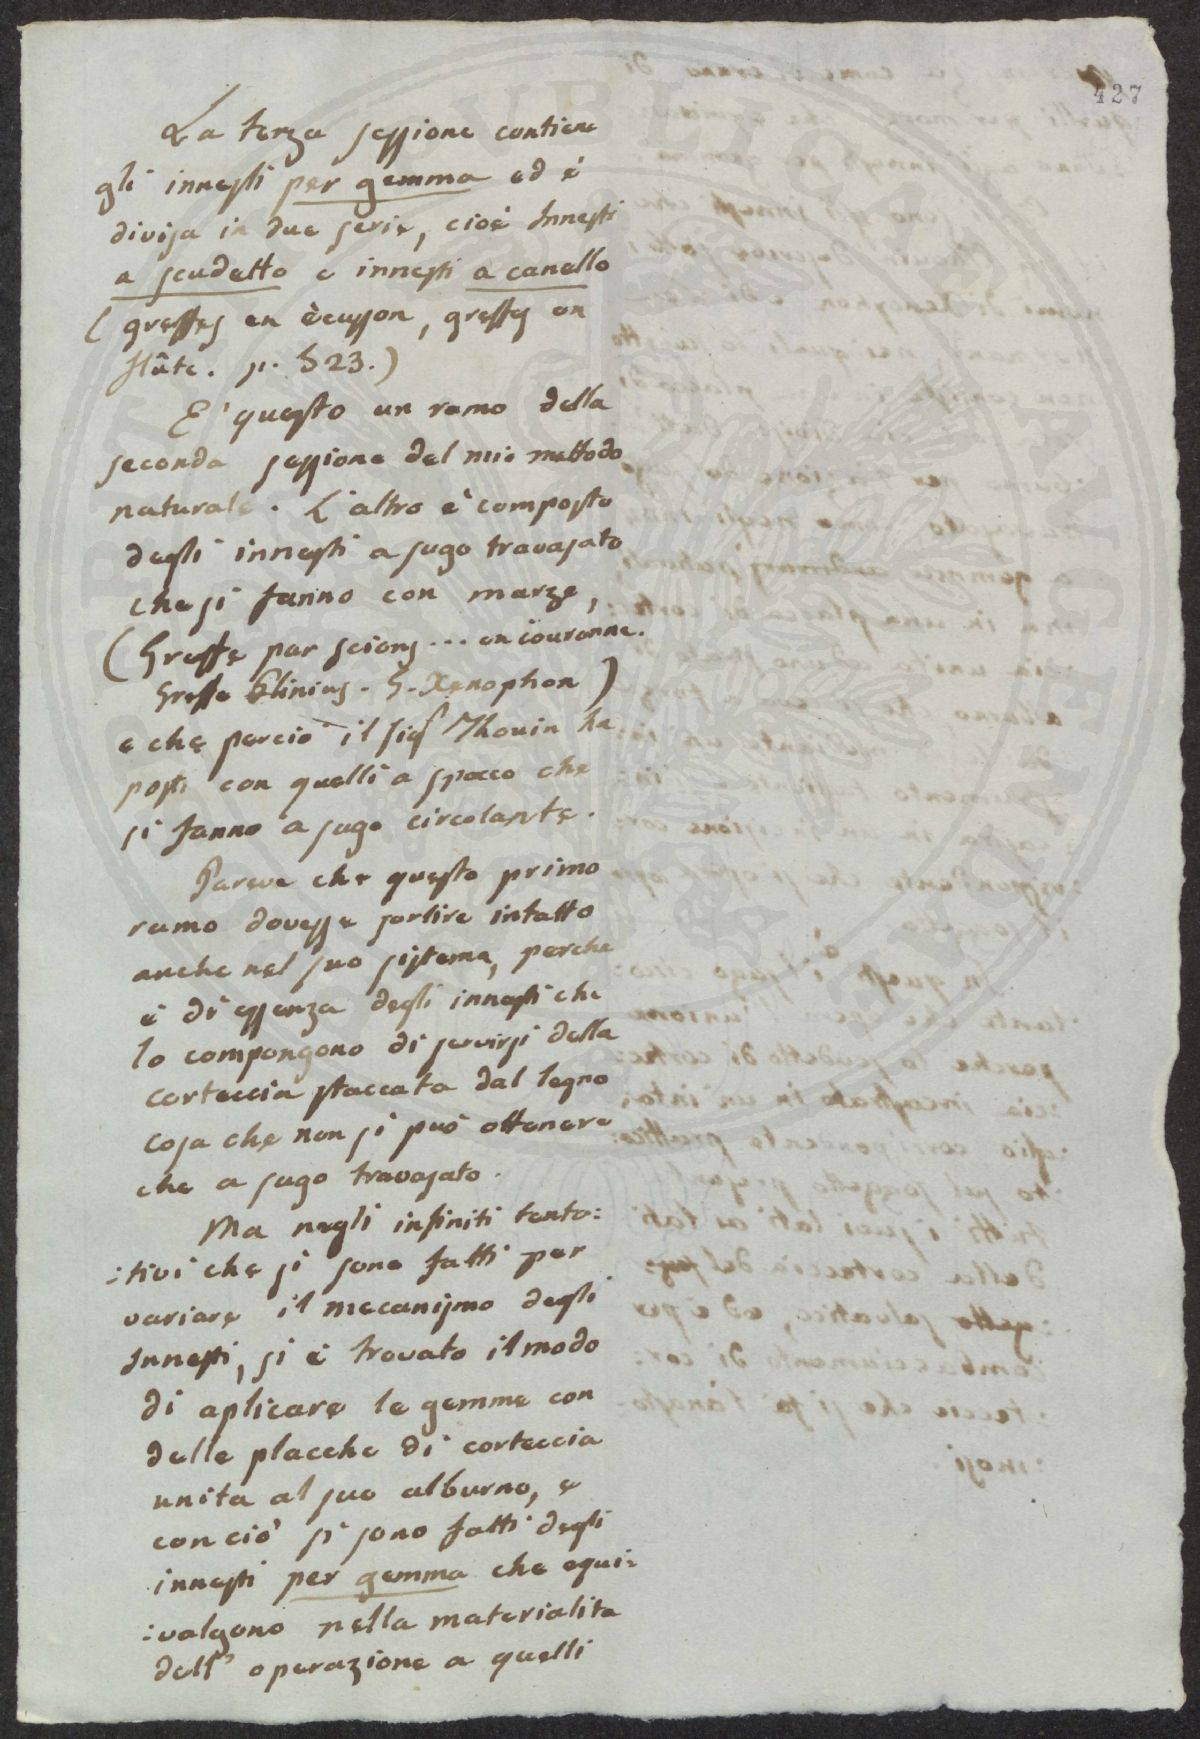 427
La terza sessione contiene
gli innesti per gemma ed è
divisa in due serie, cioè Innesti
a scudetto e innesti a canello
(greffes en ècusson, greffes en
flûte. p. 523.)
E' questo un ramo della
seconda sessione del mio mettodo
naturale. L'altro e' composto
degli innesti a sugo travasato
che si fanno con marze,
(Greffe par scions ... en couronne.
Greffe Plinius. G. Xenophon)
e che perciò il sigr Thouin ha
posti con quelli a spacco che
si fanno a sugo circolante.
Pareva che questo primo
ramo dovesse sortire intatto
anche nel suo sistema, perche
è di essenza degli innesti che
lo compongono di servirsi della
corteccia staccata dal legno
cosa che non si può ottenere
che a sugo travasato.
Ma negli infiniti tenta:
:tivi che si sono fatti per
variare il mecanismo degli
Innesti, si è trovato il modo
di aplicare le gemme con
delle placche di corteccia
unita al suo alburno, e
con ciò si sono fatti degli
innesti per gemma che equi:
:valgono nella materialita
dell' operazione a quelli